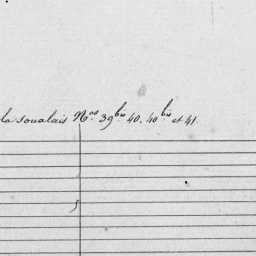 la soualais Nos 39bis 40. 40bis et 41.